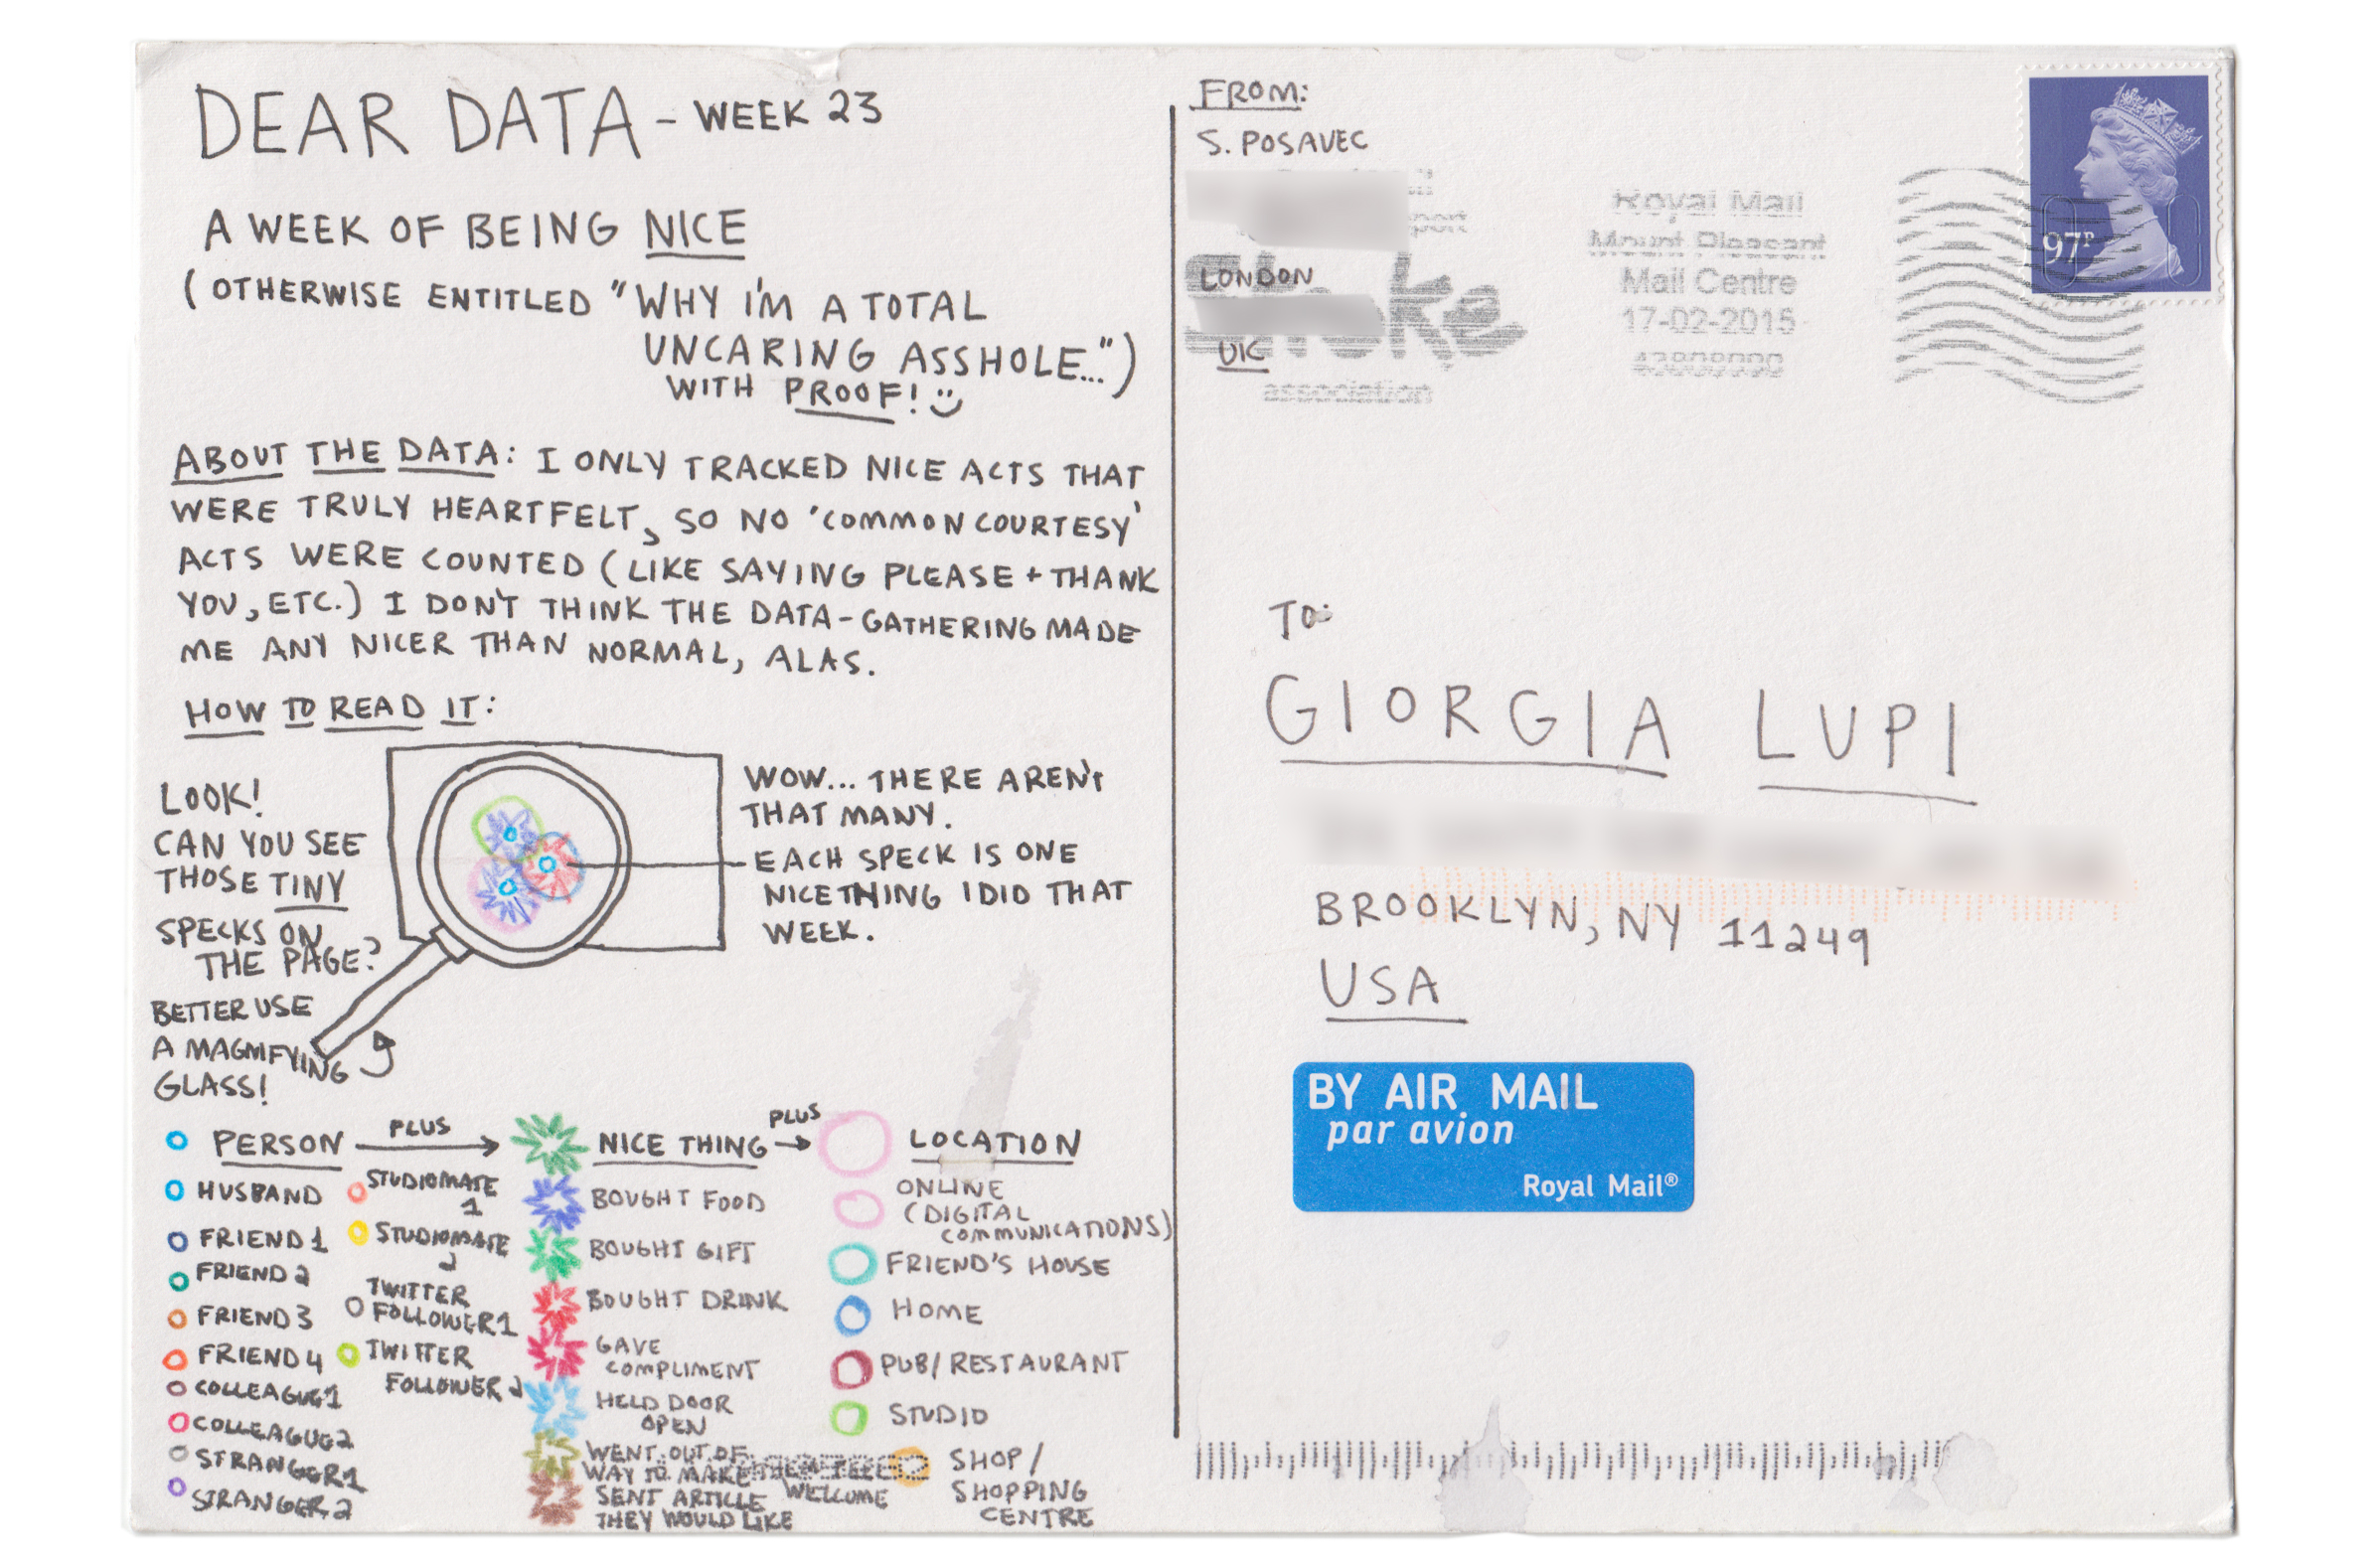 DEAR DATA - WEEK 23
A WEEK OF BEING NICE
(OTHERWISE ENTITLED "WHY I'M A TOTAL
UNCARING ASSHOLE...")
WITH PROOF!
ABOUT THE DATA: I ONLY TRACKED NICE ACTS THAT
WERE TRULY HEARTFELT, SO NO 'COMMON COURTESY'
ACTS WERE COUNTED (LIKE SAYING PLEASE + THANK
YOU, ETC.) I DON'T THINK THE DATA-GATHERING MADE
ME ANY NICER THAN NORMAL, ALAS.
HOW TO READ IT:
LOOK!
CAN YOU SEE
THOSE TINY
SPECKS ON
THE PAGE?
BETTER USE
A MAGNIFYING
GLASS!
WOW... THERE AREN'T
THAT MANY.
EACH SPECK IS ONE
NICE THING I DID THAT
WEEK.
PERSON
PLUS
NICE THING
PLUS
LOCATION
HUSBAND
FRIEND 1
FRIEND 2
FRIEND 3
FRIEND 4
COLLEAGUE 1
COLLEAGUE 2
STRANGER 1
STRANGER 2
STUDIOMATE
1
STUDIOMATE
2
TWITTER
FOLLOWER 1
TWITTER
FOLLOWER 2
BOUGHT FOOD
BOUGHT GIFT
BOUGHT DRINK
GAVE
COMPLIMENT
HELD DOOR
OPEN
WENT OUT OF
WAY TO MAKE THEM FEEL
WELCOME
SENT ARTICLE
THEY WOULD LIKE
ONLINE
(DIGITAL
COMMUNICATIONS)
FRIEND'S HOUSE
HOME
PUB/RESTAURANT
STUDIO
SHOP/
SHOPPING
CENTRE
FROM:
S. POSAVEC
LONDON
UK
association
Royal Mail
Mount Pleasant
Mail Centre
17-02-2015
97P
TO:
GIORGIA LUPI
BROOKLYN, NY 11249
USA
BY AIR MAIL
par avion
Royal Mail®